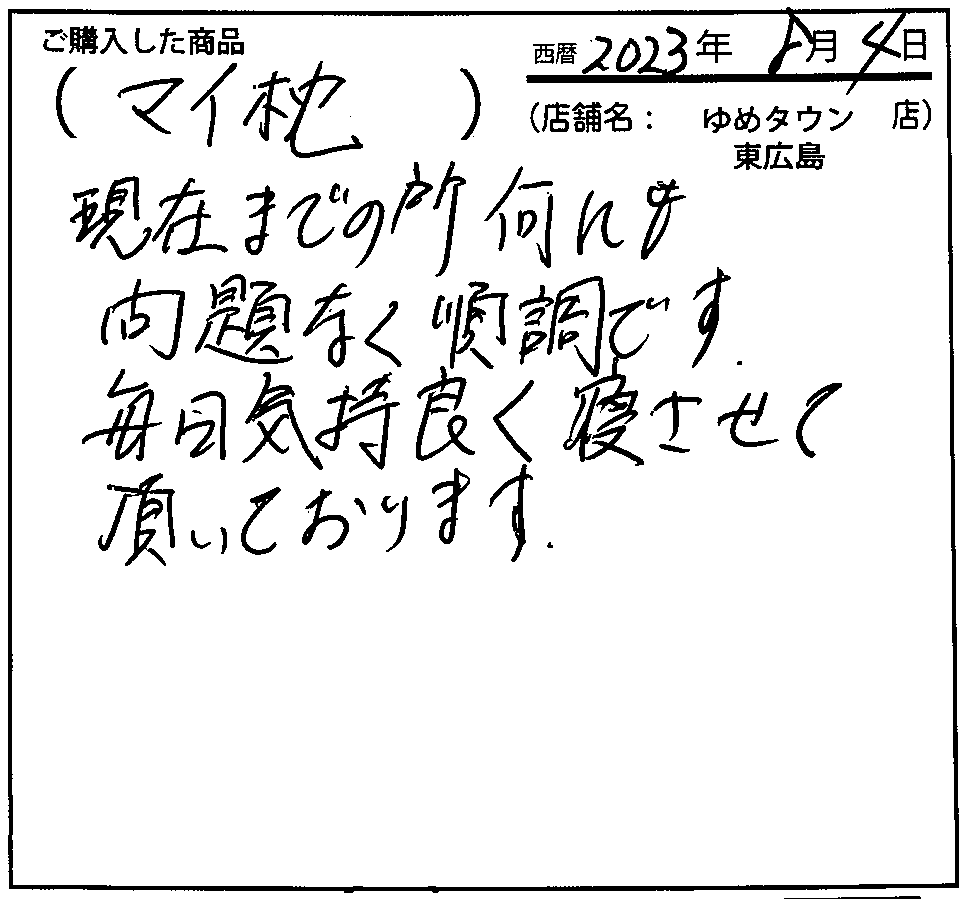 ご購入した商品
西暦 2023年 8月 4日
(マイ枕)
(店舗名： ゆめタウン 店)
東広島
現在までの所何にも
問題なく順調です.
毎日気持良く寝させて
頂いております.